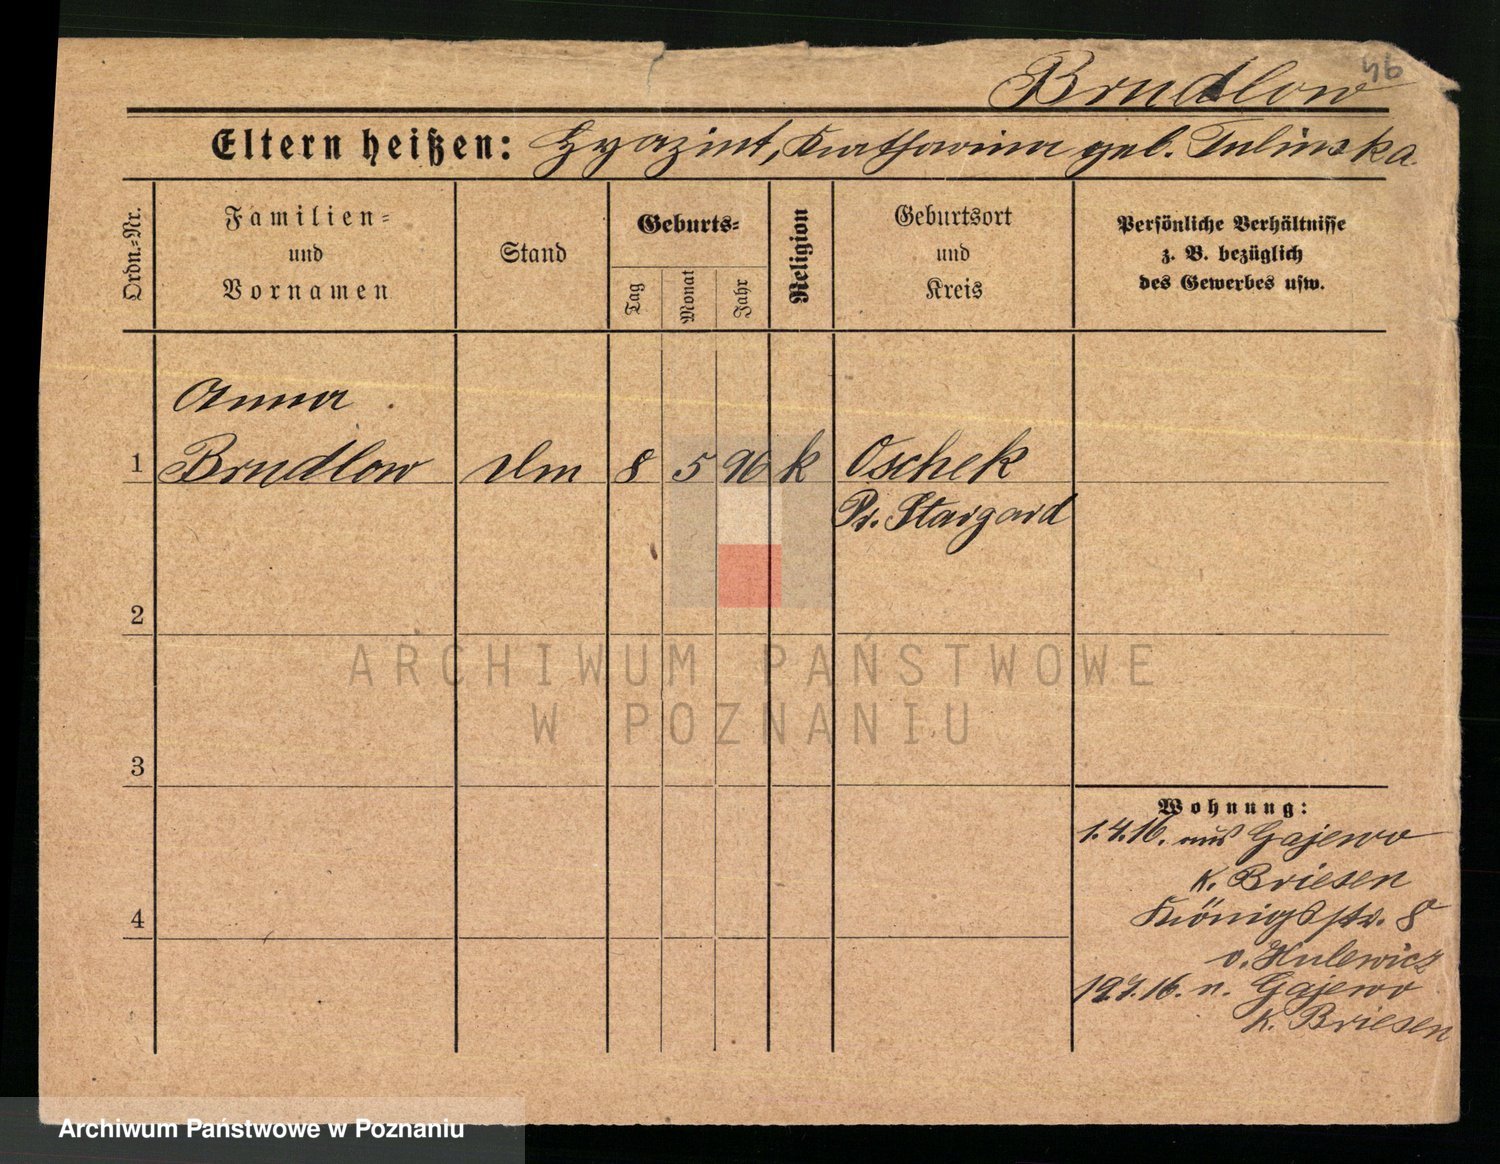 46
Brudlow
Eltern heißen: Hyazint, Katharina geb. Tulinska
Ordn.=Nr.
Familien=
und
Vornamen
Stand
Geburts=
Tag
Monat
Jahr
Religion
Geburtsort
und
Kreis
Persönliche Verhältnisse
z. B. bezüglich
des Gewerbes usw.
Anna
1 Brudlow 8 5 96 k Oschek
Pr. Stargard
2
ARCHIWUM PAŃSTWOWE
W POZNANIU
3
Wohnung:
1.4.16. aus Gajewo
K. Briesen
4
Königsstr. 8
v. Hulewicz
n. Gajewo
K. Briesen
Archiwum Państwowe w Poznaniu